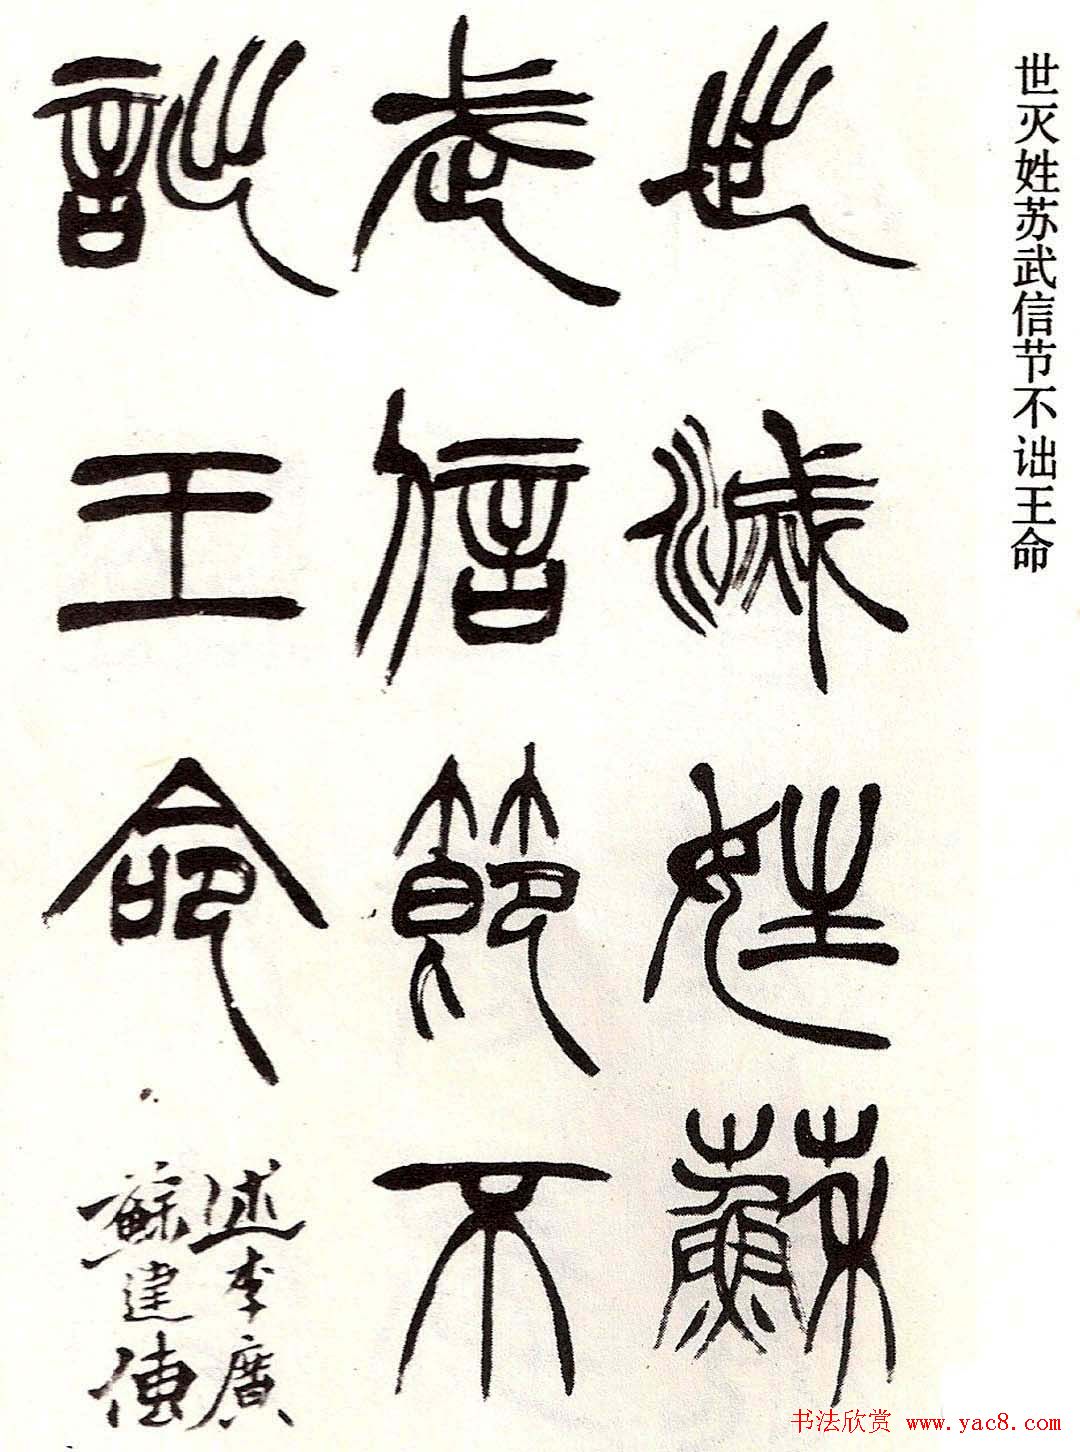 世灭姓苏武信节不诎王命
世滅姓蘇
武信節不
詘王命
述李廣
蘇建傳
书法欣赏 www.yac8.com